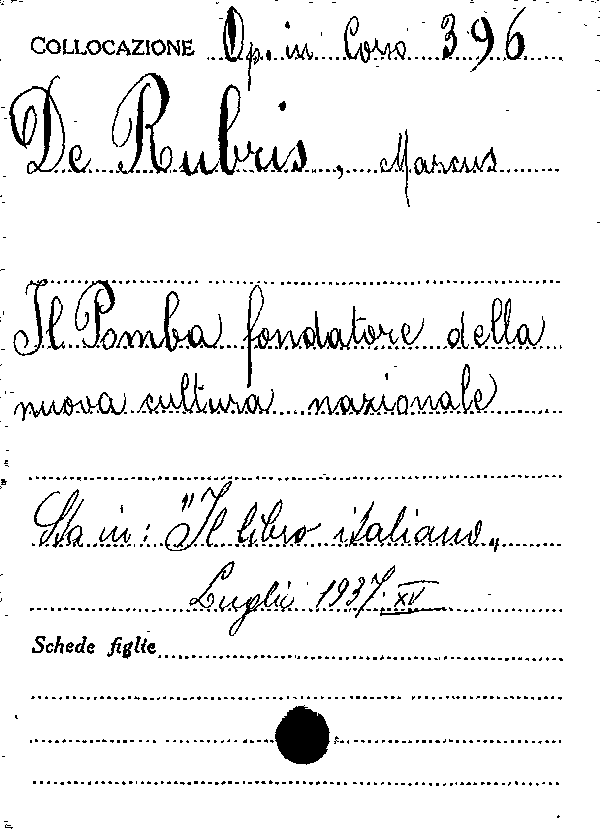 COLLOCAZIONE Op. in Corso 396
De Rubris, Marcus
Il Pomba fondatore della
nuova cultura nazionale
Sta in: "Il libro italiano„
Luglio 1937. XV
Schede figlie